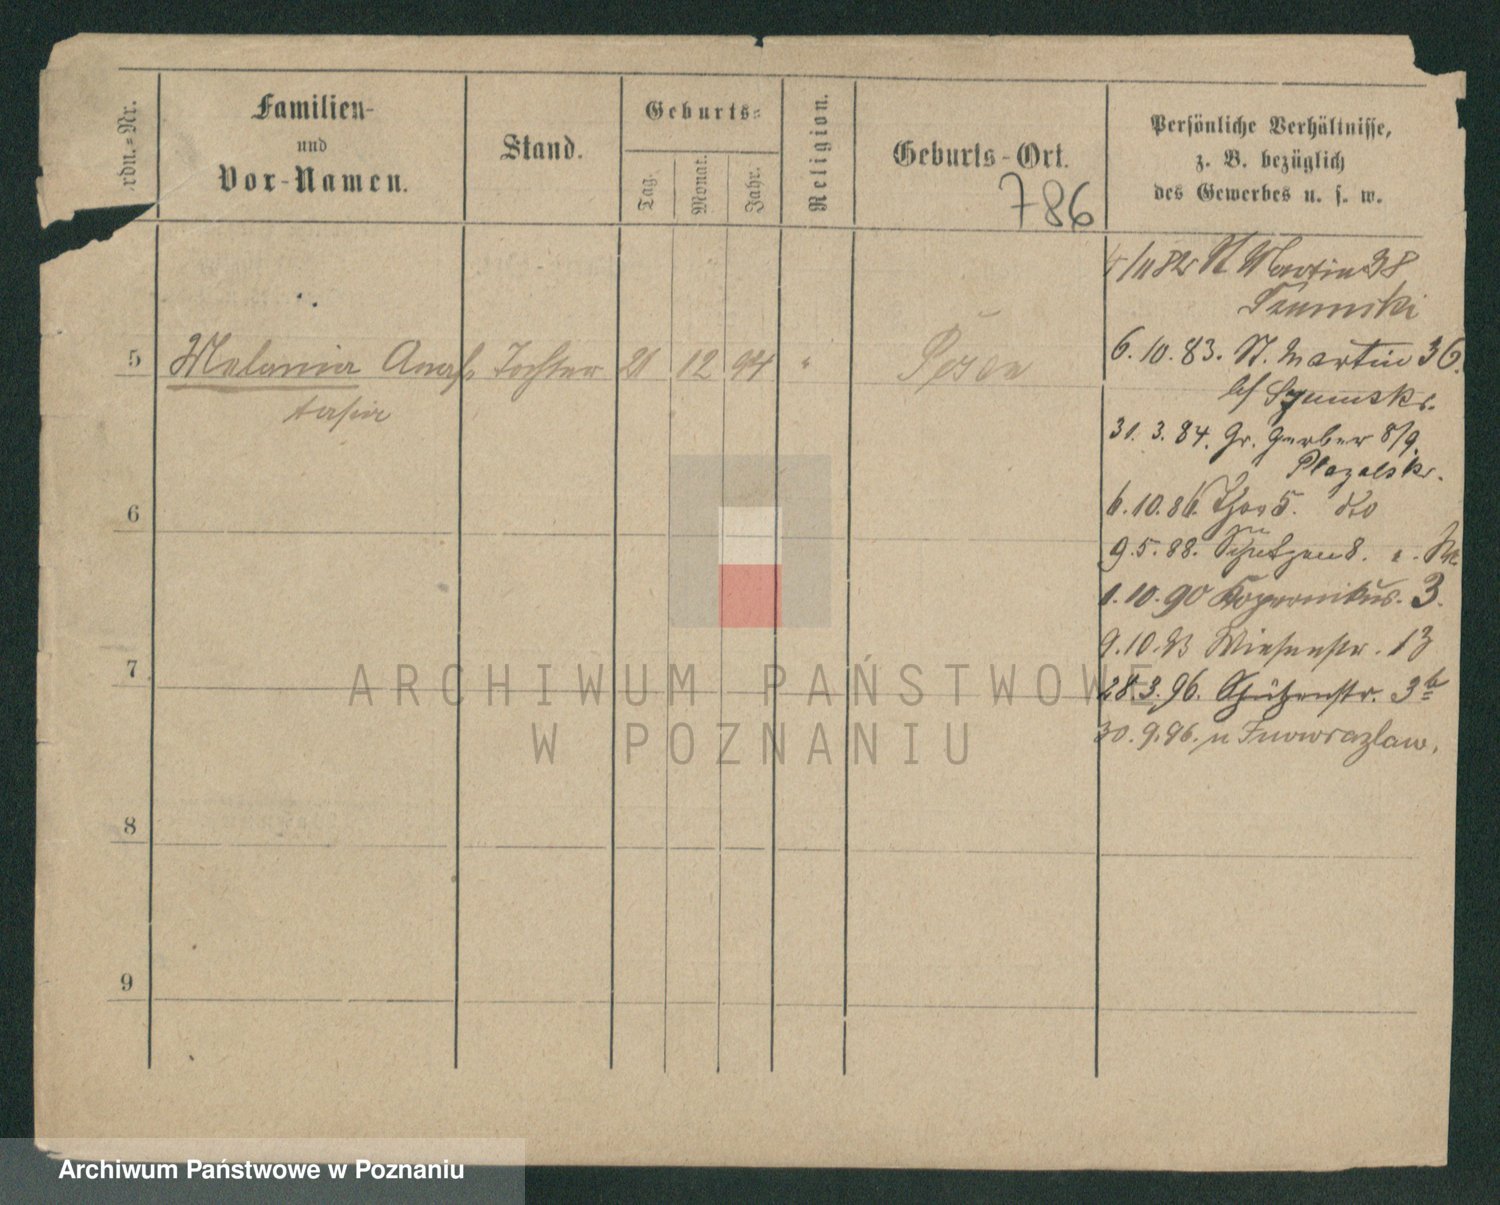 rdn.-Nr.
Familien-
und
Vor-Namen.
Stand.
Geburts-
Tag.
Monat.
Jahr.
Religion.
Geburts-Ort.
786
Persönliche Verhältnisse,
z. B. bezüglich
des Gewerbes u. s. w.
/11 82 St Martin 38
Szumski
5 Melania Anas- Tochter 21 12 94 " Posen
tasia
6.10.83. St. Martin 36.
bf Szumski.
31.3.84. Gr. Gerber 8/9.
6.10.86. Thor 5. dto
9.5.88. Schützen 8.
1.10.90 Kopernikus. 3.
9.10.93 Wiesenstr. 13
28.3.96. Schützenstr. 3b
30.9.96. n Inowrazlaw.
6
7
8
9
ARCHIWUM PAŃSTWOWE
W POZNANIU
Archiwum Państwowe w Poznaniu